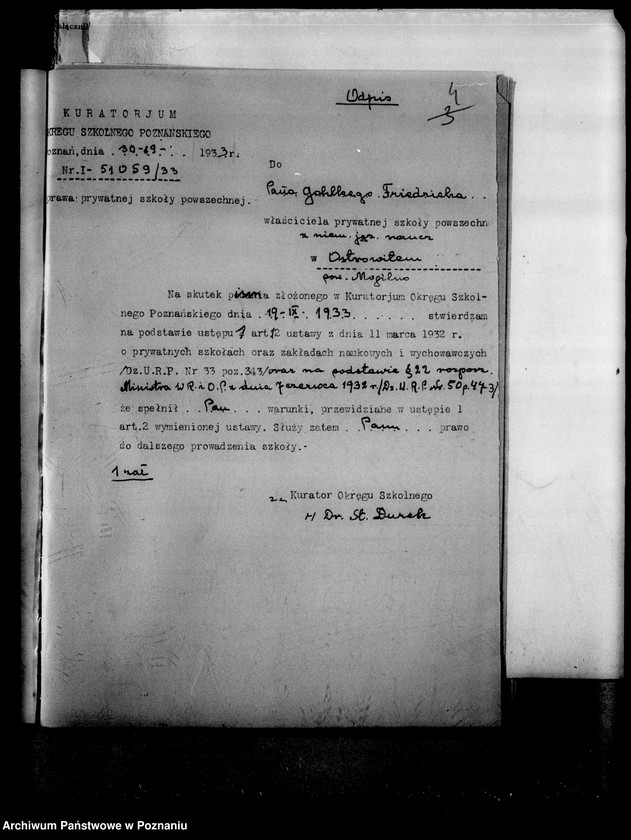 Odpis
4/3
KURATORJUM
KRĘGU SZKOLNEGO POZNAŃSKIEGO
oznań, dnia . 30-19- . . 1933 r.
Nr. I- 51059/33
prawa: prywatnej szkoły powszechnej.
Do
Pana Friedricha . .
właściciela prywatnej szkoły powszechn
z niem. jęz. naucz
w Ostrowitem
pow. Mogilno
Na skutek podania złożonego w Kuratorjum Okręgu Szkol-
nego Poznańskiego dnia . 19-IX-. 1933 . . . . . . stwierdzam
na podstawie ustępu 1 art 12 ustawy z dnia 11 marca 1932 r.
o prywatnych szkołach oraz zakładach naukowych i wychowawczych
/Dz.U.R.P. Nr 33 poz.343/ oraz na podstawie § 22 rozporz.
Ministra W R i O.P. z dnia 7 czerwca 1932 r /Dz. U. R. P. Nr. 50 p. 473/
że spełnił . . Pan . . . warunki, przewidziane w ustępie 1
art.2 wymienionej ustawy. Służy zatem . . Panu . . . prawo
do dalszego prowadzenia szkoły.-
1 zał
za Kurator Okręgu Szkolnego
Dr. St. Durek
Archiwum Państwowe w Poznaniu